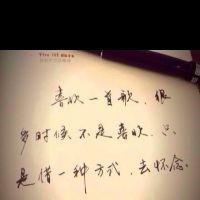 喜欢一首歌，很
多时候不是喜欢，只
是借一种方式，去怀念。